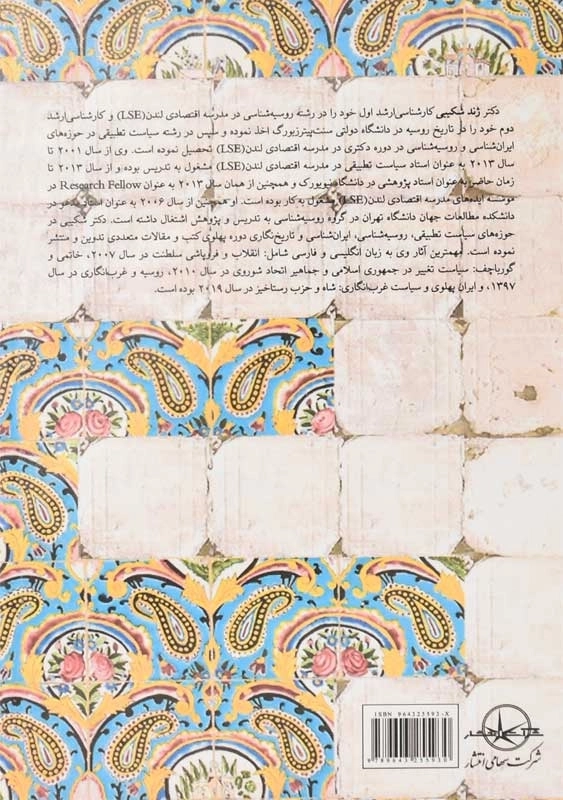 دکتر ژند شکیبی کارشناسی‌ارشد اول خود را در رشته روسیه‌شناسی در مدرسه اقتصادی لندن(LSE) و کارشناسی‌ارشد
دوم خود را در تاریخ روسیه در دانشگاه دولتی سنت‌پیترزبورگ اخذ نموده و سپس در رشته سیاست تطبیقی در حوزه‌های
ایران‌شناسی و روسیه‌شناسی در دوره دکتری در مدرسه اقتصادی لندن(LSE) تحصیل نموده است. وی از سال ۲۰۰۱ تا
سال ۲۰۱۳ به عنوان استاد سیاست تطبیقی در مدرسه اقتصادی لندن(LSE) مشغول به تدریس بوده و از سال ۲۰۱۳ تا
زمان حاضر به عنوان استاد پژوهشی در دانشگاه نیویورک و همچنین از همان سال ۲۰۱۳ به عنوان Research Fellow در
موسسه ایده‌های مدرسه اقتصادی لندن(LSE) مشغول به کار بوده است. او همچنین از سال ۲۰۰۶ به عنوان استاد مدعو در
دانشکده مطالعات جهان دانشگاه تهران در گروه روسیه‌شناسی به تدریس و پژوهش اشتغال داشته است. دکتر شکیبی در
حوزه‌های سیاست تطبیقی، روسیه‌شناسی، ایران‌شناسی و تاریخ‌نگاری دوره پهلوی کتب و مقالات متعددی تدوین و منتشر
نموده است. مهمترین آثار وی به زبان انگلیسی و فارسی شامل: انقلاب و فروپاشی سلطنت در سال ۲۰۰۷، خاتمی و
گورباچف: سیاست تغییر در جمهوری اسلامی و جماهیر اتحاد شوروی در سال ۲۰۱۰، روسیه و غرب‌انگاری در سال
۱۳۹۷، و ایران پهلوی و سیاست غرب‌انگاری: شاه و حزب رستاخیز در سال ۲۰۱۹ بوده است.
ISBN 964325593-X
9 789643 255930
شرکت سهامی انتشار